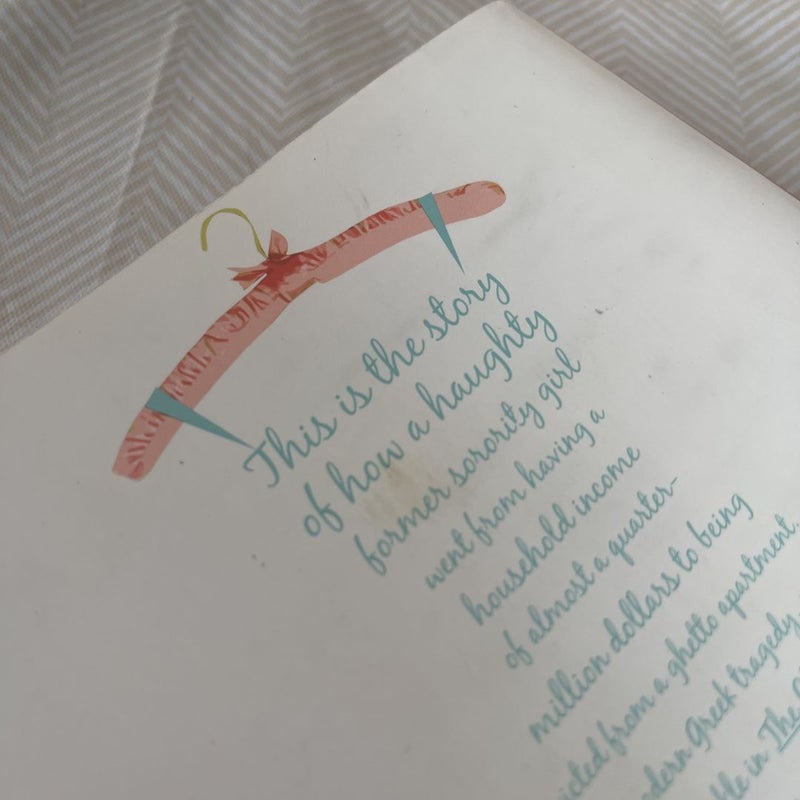 This is the story
of how a haughty
former sorority girl
went from having a
household income
of almost a quarter-
million dollars to being
icted from a ghetto apartment.
dern Greek tragedy,
le in The